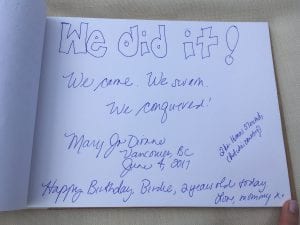 We did it!
We came. We swam.
We conquered!
Mary Jo Dionne
Vancouver, BC
June 4, 2017
Happy Birthday, Birdie, 2 years old today
Love, mommy x.